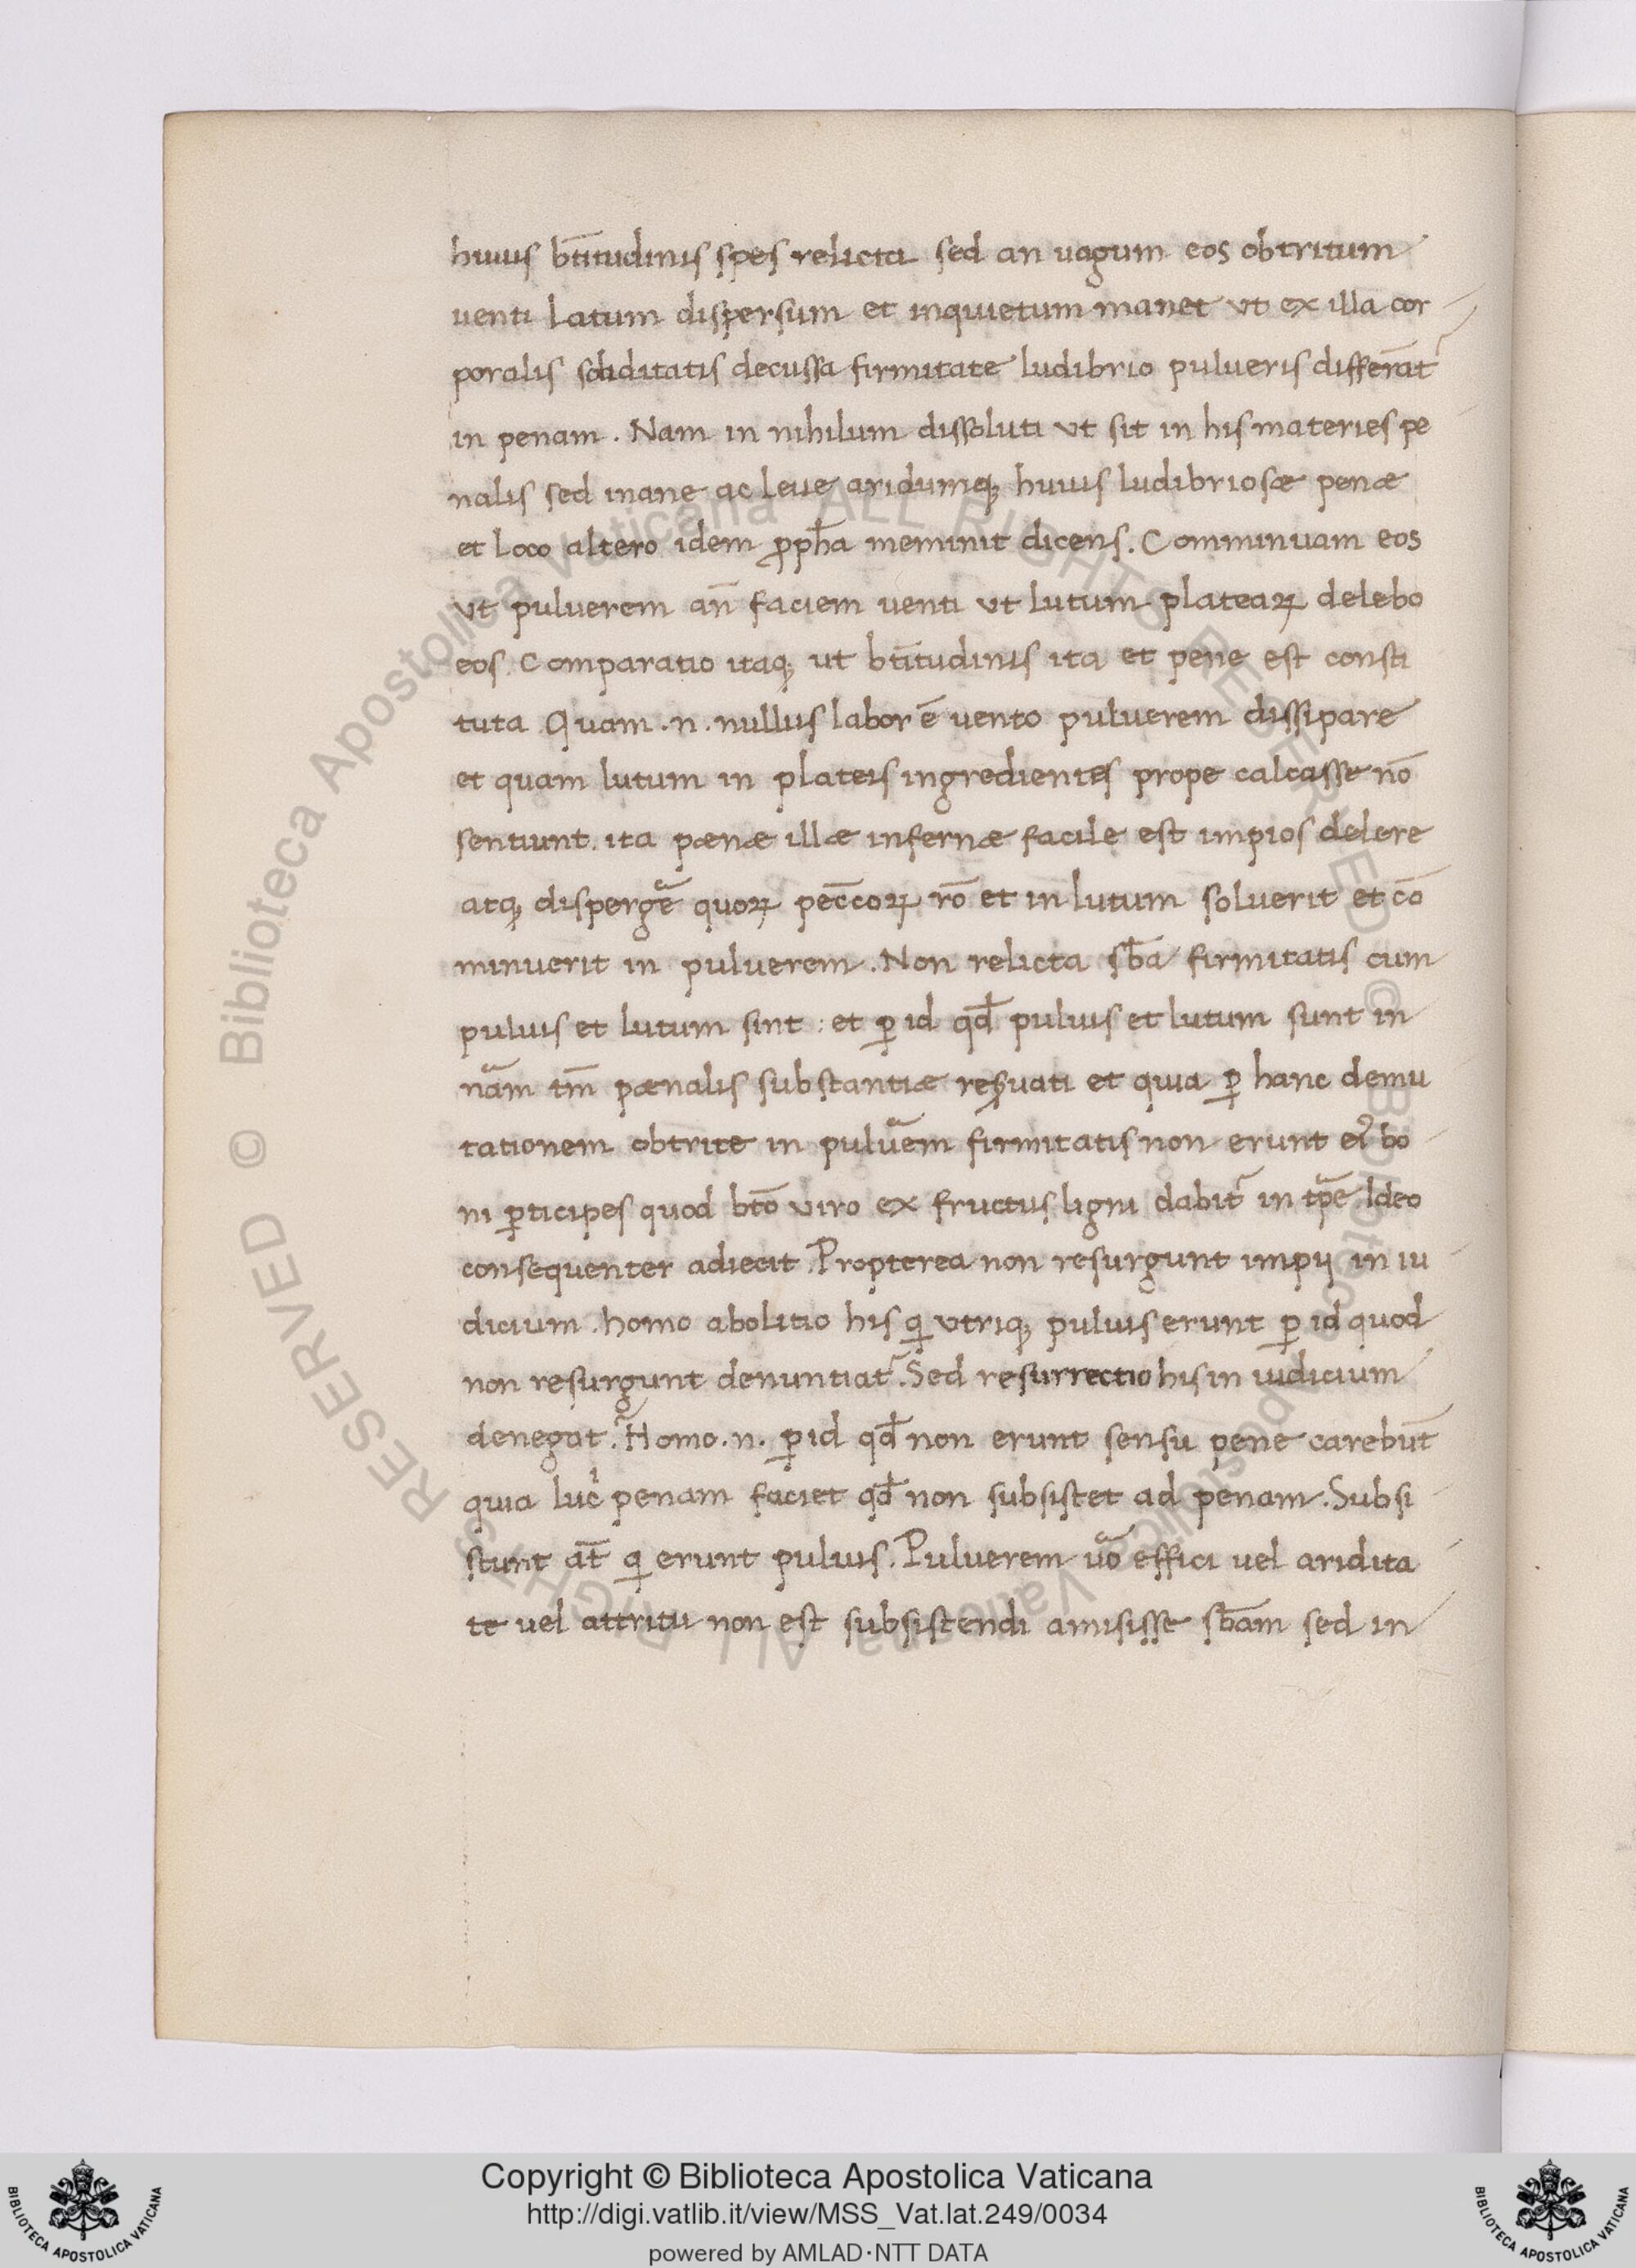 huius bt̄itudinis spes relicta sed an uagum eos obtritum
uenti latum dispersum et inquietum manet vt ex illa cor
poralis soliditatis decussa firmitate ludibrio pulueris differāt
in penam. Nam in nihilum dissoluti vt sit in his materies pe
nalis sed inane ac leue aridumq; huius ludibriosæ penæ
et loco altero idem ꝓph̄a meminit dicens. Comminuam eos
vt puluerem an̄ faciem uenti vt lutum plateaꝝ delebo
eos. Comparatio itaq; ut bt̄itudinis ita et pene est consti
tuta Quam .n. nullus labor ē uento puluerem dissipare
et quam lutum in plateis ingredientes prope calcasse nō
sentiunt. ita pænæ illæ infernæ facile est impios delere
atq; dispergē quoꝝ pec̄coꝝ rō et in lutum soluerit et cō
minuerit in puluerem. Non relicta sb̄a firmitatis cum
puluis et lutum sint : et ꝑ id qd̄ puluis et lutum sunt in
nām tm̄ pænalis substantiæ reseruati et quia ꝑ hanc demu
tationem obtrite in puluēm firmitatis non erunt ei᷎ bo
ni ꝑticipes quod btō viro ex fructus ligni dabit᷑ in tp̄e. Ideo
consequenter adiecit Propterea non resurgunt impij in iu
dicium. homo abolitio his qi vtriq; puluis erunt ꝑ id quod
non resurgunt denuntiat᷑. Sed resurrectio his in iudicium
denegat᷑. Homo .n. ꝑ id qd̄ non erunt sensu pene carebūt
quia luc᷎ penam faciet qd̄ non subsistet ad penam. Subsi
stunt at̄ qi erunt puluis. Puluerem uō effici uel aridita
te uel attritu non est subsistendi amisisse sb̄am sed in
Copyright © Biblioteca Apostolica Vaticana
http://digi.vatlib.it/view/MSS_Vat.lat.249/0034
powered by AMLAD·NTT DATA